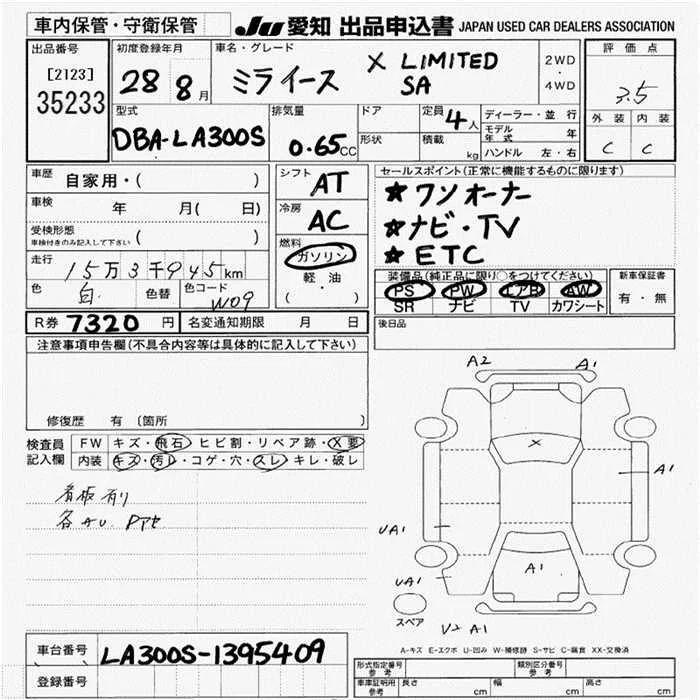 車内保管・守衛保管
JU 愛知 出品申込書 JAPAN USED CAR DEALERS ASSOCIATION
出品番号
[2123]
35233
初度登録年月
28 8月
車名・グレード
ミライース X LIMITED
SA
2WD
・
4WD
評価点
3.5
外装 内装
C C
型式
DBA-LA300S
排気量
0.65CC
ドア
形状
定員 4人
積載 kg
ディーラー・並行
モデル年式 年
ハンドル 左・右
車歴 自家用・( )
車検 年 月( 日)
受検形態
車検付きのみ記入して下さい ( )
走行 15万3千945km
色 白 色替 色コード W09
シフト AT
冷房 AC
燃料
ガソリン
・
軽油
・
( )
セールスポイント(正常に機能するものに限ります)
★ワンオーナー
★ナビ・TV
★ETC
装備品(純正品に限り○をつけてください)
PS PW エアB AW
SR ナビ TV カワシート
新車保証書
有・無
R券 7320円 名変通知期限 月 日
後日品
注意事項申告欄(不具合内容等は具体的に記入して下さい)
修復歴 有 〔箇所 〕
検査員
記入欄
FW キズ・飛石・ヒビ割・リペア跡・X要
内装 キズ・汚レ・コゲ・穴・スレ・キレ・破レ
看板有り
各AU
A2 A1
X
A1
UA1
A1
UA1
スペア
A1
A-キズ E-エクボ U-凹み W-補修跡 S-サビ C-腐食 XX-交換済
車台番号 LA300S-1395409
登録番号
形式指定番号
参考
類別区分番号
参考
車庫証明用
参考
長さ cm 幅 cm 高さ cm